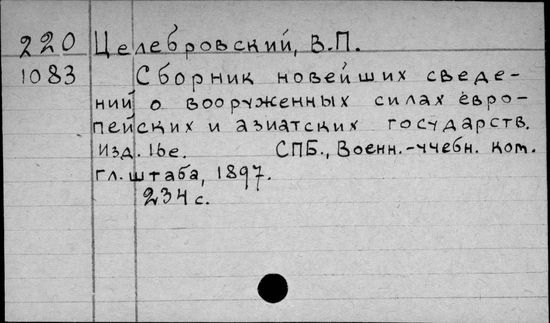 220 Целебровский, В.П.
1083 Сборник новейших сведе-
ний о вооруженных силах евро-
пейских и азиатских государств.
Изд. 16е. СПБ., Воен.-учебн. ком.
гл. штаба, 1897.
234 с.